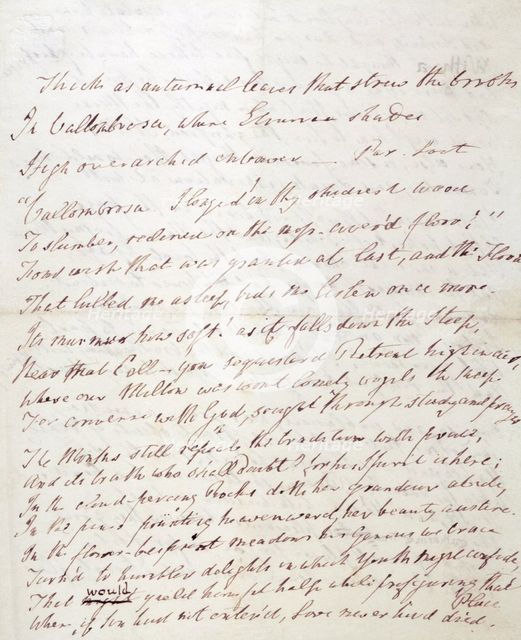 Thick as autumnal leaves that strew the brooks
In Vallombrosa, where Etrurian shades
High overarch'd embower — Par. Lost
"Vallombrosa I longed in thy shadiest wood
To slumber, reclined on the moss-cover'd floor!"
Fond wish that was granted at last, and the Flood
That lulled me asleep, bids me listen once more.
Its murmur how soft! as it falls down the Steep,
Near that Cell—yon sequestered Retreat high in air,
Where our Milton was wont lonely vigils to keep
For converse with God, sought through study and prayer.
The Monks still repeat the tradition with pride,
And its truth who shall doubt? for his Spirit is here;
In the cloud-piercing Rocks doth her grandeur abide,
In the pines pointing heavenward, her beauty austere.
In the flower-besprent meadows his Genius we trace
Turn'd to humbler delights in which Youth might confide,
would
That yield him fit help while prefiguring that
Place
Where, if Sin had not entered, Love never had died.
Heritage